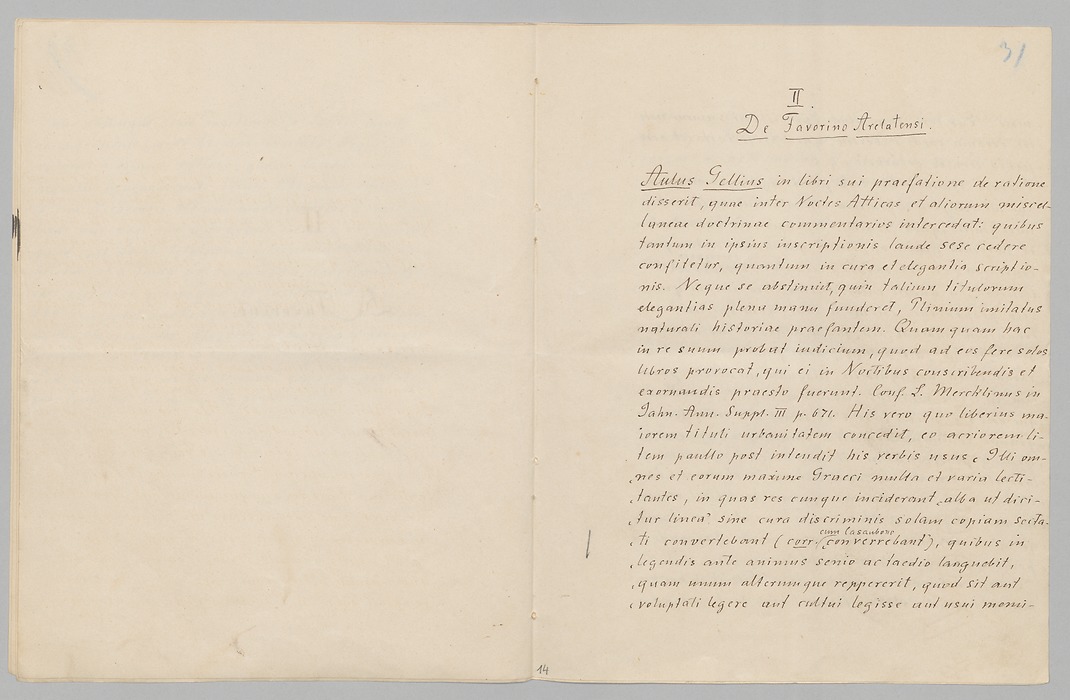 31
II.
De Favorino Arelatensi.
Aulus Gellius in libri sui praefatione de ratione
disserit, quae inter Noctes Atticas et aliorum miscel-
laneae doctrinae commentarios intercedat: quibus
tantum in ipsius inscriptionis laude sese cedere
confitetur, quantum in cura et elegantia scriptio-
nis. Neque se abstinuit, quin talium titulorum
elegantias plenu manu funderet, Plinium imitatus
naturali historiae praefantem. Quamquam hac
in re suum probat iudicium, quod ad eos fere solos
libros provocat, qui ei in Noctibus conscribendis et
exornandis praesto fuerunt. Conf. L. Mercklinus in
Jahn. Ann. Suppl. III p. 671. His vero quo liberius ma-
iorem tituli urbanitatem concedit, eo acriorem li-
tem paullo post intendit his verbis usus „Illi om-
„nes et eorum maxime Graeci multa et varia lecti-
„tantes, in quas res cunque inciderant „alba ut dici-
„tur linea“ sine cura discriminis solam copiam secta-
cum Casaubono
„ti convertebant (corr. converrebant), quibus in
„legendis ante animus senio ac taedio languebit,
„quam unum alterumque reppererit, quod sit aut
„voluptati legere aut cultui legisse aut usui memi-
14